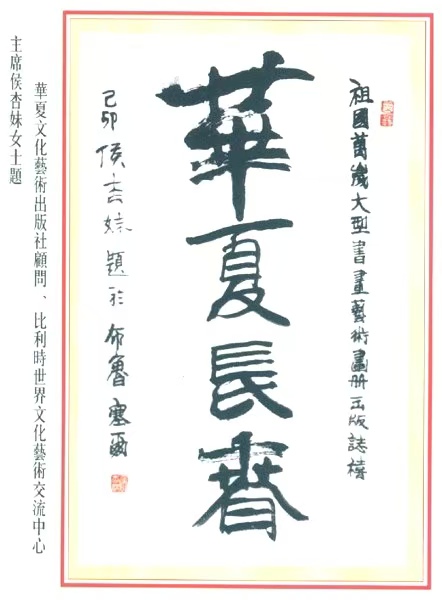 祖國萬歲大型書畫藝術畫册出版誌禧
華夏長春
己卯侯杏妹題於布魯塞爾
華夏文化藝術出版社顧問、比利時世界文化藝術交流中心
主席侯杏妹女士題